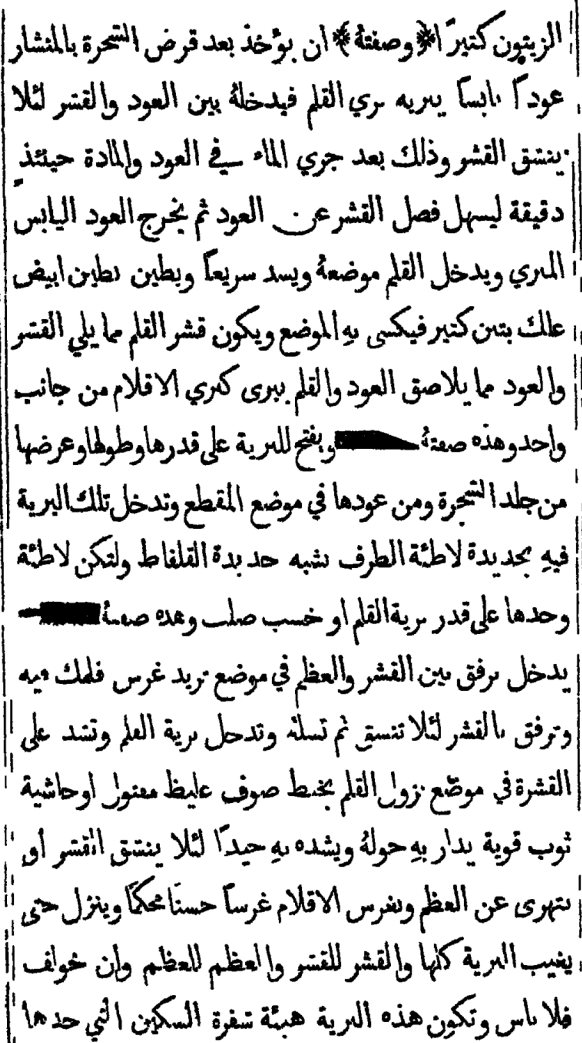 الزيتون كثيرًا ﴿وصفتهُ﴾ ان يؤخذ بعد قرض الشجرة بالمنشار
عوداً يابساً يبريه بري القلم فيدخلهُ بين العود والقشر لئلا
ينشق القشر وذلك بعد جري الماء في العود والمادة حينئذٍ
دقيقة ليسهل فصل القشر عن العود ثم يخرج العود اليابس
المبري ويدخل القلم موضعهُ ويسد سريعاً ويطين بطين ابيض
علك بتبن كثير فيكسى بهِ الموضع ويكون قشر القلم مما يلي القشر
والعود مما يلاصق العود والقلم يبرى كبري الاقلام من جانب
واحد وهذه صفتهُ ويفتح للبرية على قدرها وطولها وعرضها
من جلد الشجرة ومن عودها في موضع المقطع وتدخل تلك البرية
فيهِ بحديدة لاطئة الطرف تشبه حديدة القلفاط ولتكن لاطئة
وحدها على قدر برية القلم او خشب صلب وهذه صفتهُ
يدخل برفق بين القشر والعظم في موضع تريد غرس قلمك فيه
وترفق بالقشر لئلا تنشق ثم تسلهُ وتدخل برية القلم وتشد على
القشرة في موضع نزول القلم بخيط صوف غليظ مفتول او حاشية
ثوب قوية يدار بهِ حولهُ ويشده بهِ جيدًا لئلا ينشق القشر أو
يتهرى عن العظم وتغرس الاقلام غرساً حسنًا محكمًا وينزل حتى
يغيب البرية كلها والقشر للقشر والعظم للعظم وان خولف
فلا باس وتكون هذه البرية هيئة شفرة السكين التي حدها